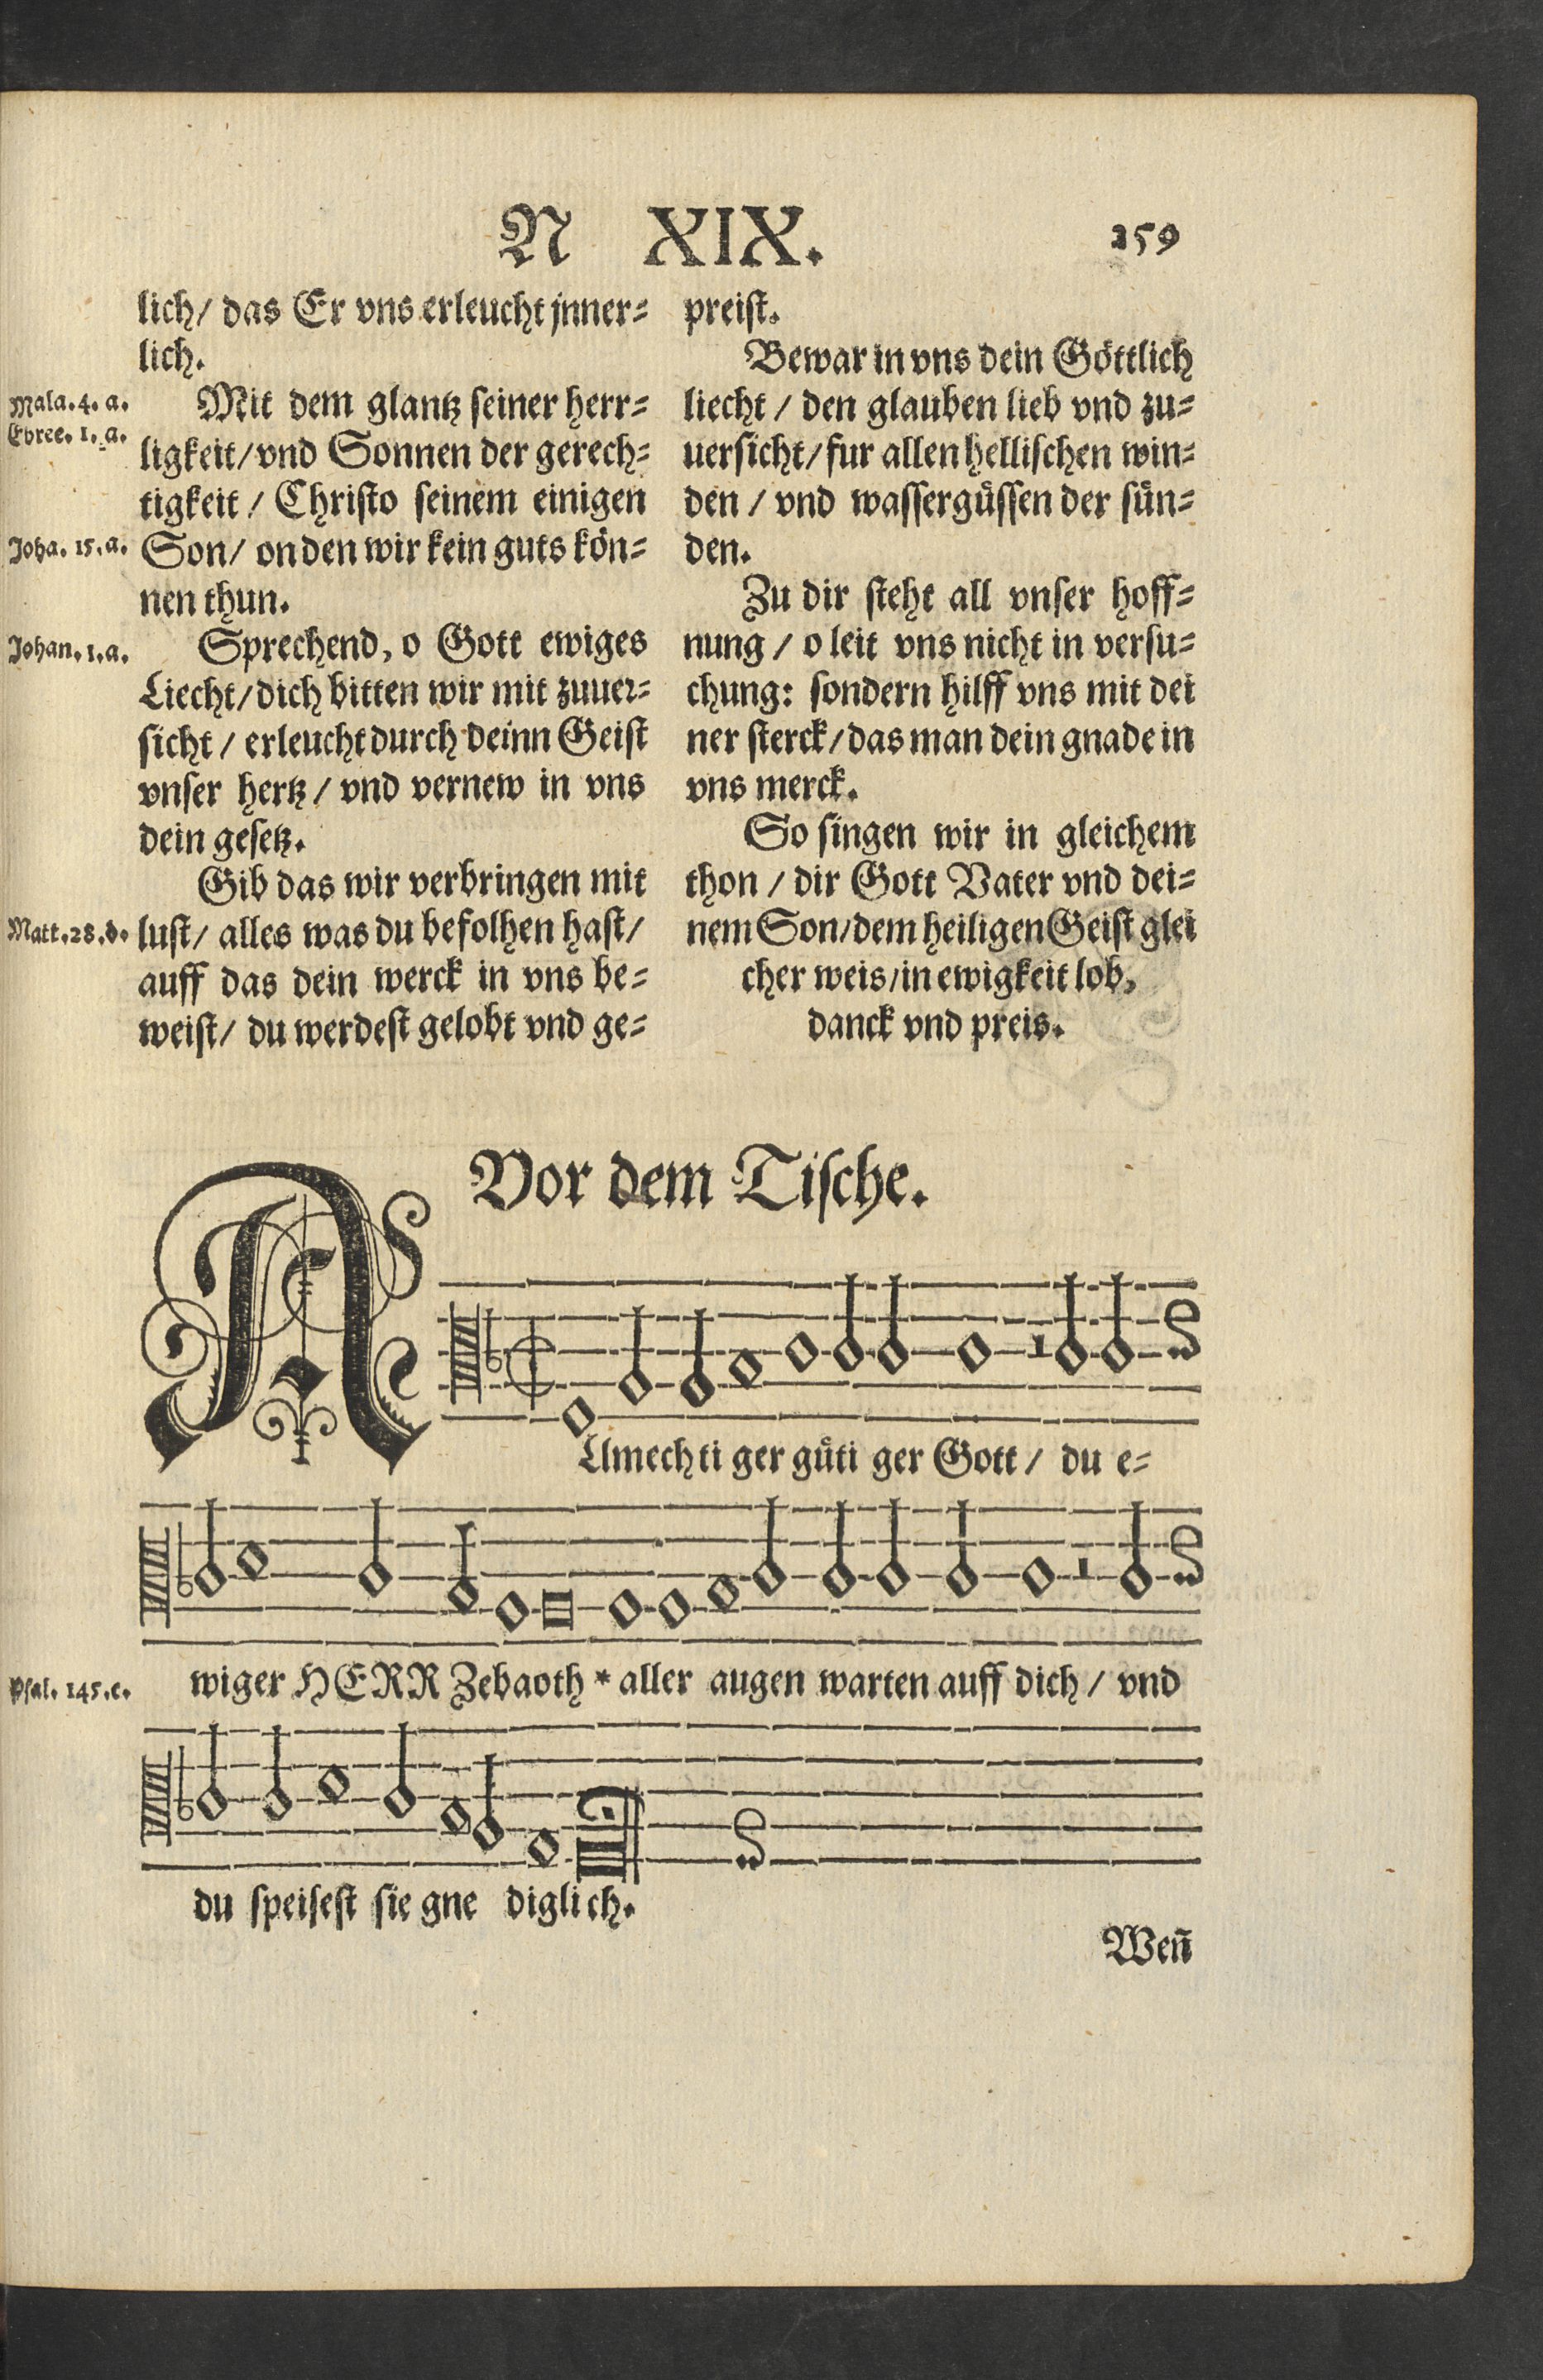 N XIX. 259
lich/ das Er vns erleucht jnner⸗
lich.
Mala. 4. a.
Mit dem glantz seiner herr⸗
Ebree. 1. a.
ligkeit/vnd Sonnen der gerech⸗
tigkeit / Christo seinem einigen
Joha. 15. a.
Son/ on den wir kein guts kön⸗
nen thun.
Johan. 1. a.
Sprechend, o Gott ewiges
Liecht/dich bitten wir mit zuuer⸗
sicht / erleucht durch deinn Geist
vnser hertz / vnd vernew in vns
dein gesetz.
Gib das wir verbringen mit
Matt. 28. d.
lust/ alles was du befolhen hast/
auff das dein werck in vns be⸗
weist/ du werdest gelobt vnd ge⸗
preist.
Bewar in vns dein Göttlich
liecht / den glauben lieb vnd zu⸗
uersicht/fur allen hellischen win⸗
den / vnd wassergüssen der sün⸗
den.
Zu dir steht all vnser hoff⸗
nung / o leit vns nicht in versu⸗
chung: sondern hilff vns mit dei
ner sterck/das man dein gnade in
vns merck.
So singen wir in gleichem
thon / dir Gott Vater vnd dei⸗
nem Son/dem heiligen Geist glei
cher weis/in ewigkeit lob,
danck vnd preis.
Vor dem Tische.
ALlmechti ger güti ger Gott / du e⸗
Psal. 145. c.
wiger HERR Zebaoth * aller augen warten auff dich / vnd
du speisest sie gne diglich.
Wen̄